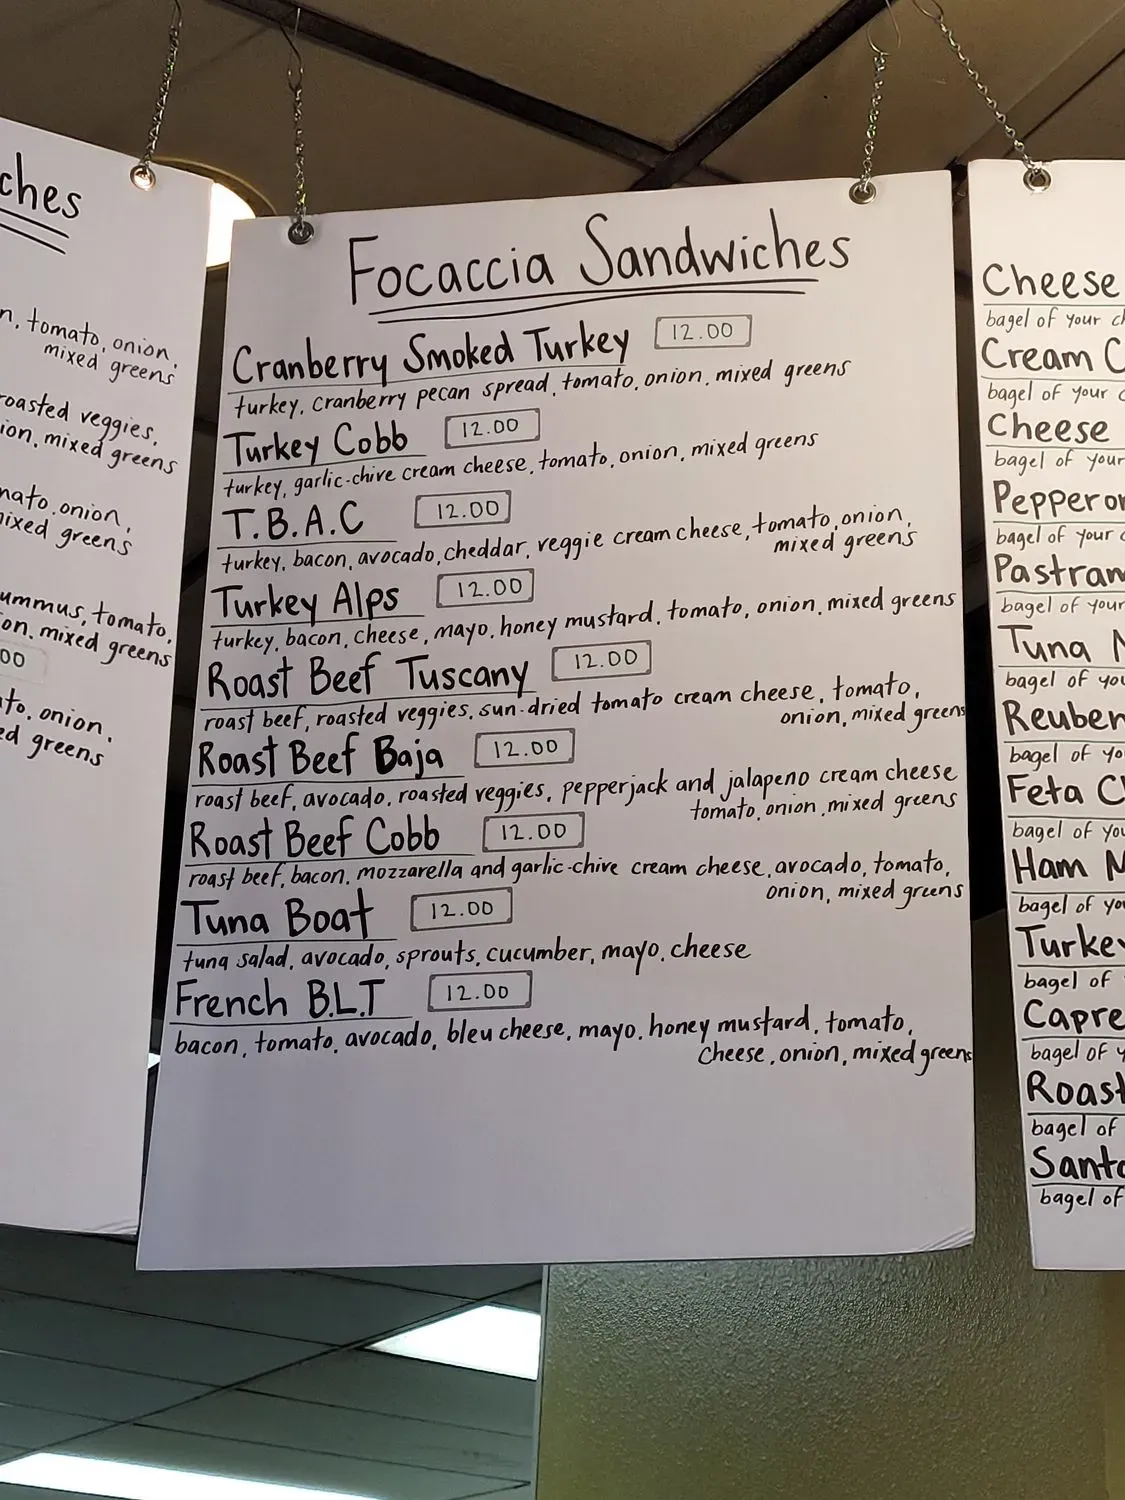 ches
n, tomato, onion,
mixed greens
roasted veggies,
ion, mixed greens
mato, onion,
mixed greens
ummus, tomato,
on, mixed greens
00
to, onion,
ed greens
Focaccia Sandwiches
Cranberry Smoked Turkey 12.00
turkey, cranberry pecan spread, tomato, onion, mixed greens
Turkey Cobb 12.00
turkey, garlic-chive cream cheese, tomato, onion, mixed greens
T.B.A.C 12.00
turkey, bacon, avocado, cheddar, veggie cream cheese, tomato, onion,
mixed greens
Turkey Alps 12.00
turkey, bacon, cheese, mayo, honey mustard, tomato, onion, mixed greens
Roast Beef Tuscany 12.00
roast beef, roasted veggies, sun-dried tomato cream cheese, tomato,
onion, mixed greens
Roast Beef Baja 12.00
roast beef, avocado, roasted veggies, pepperjack and jalapeno cream cheese
tomato, onion, mixed greens
Roast Beef Cobb 12.00
roast beef, bacon, mozzarella and garlic-chive cream cheese, avocado, tomato,
onion, mixed greens
Tuna Boat 12.00
tuna salad, avocado, sprouts, cucumber, mayo, cheese
French B.L.T 12.00
bacon, tomato, avocado, bleu cheese, mayo, honey mustard, tomato,
cheese, onion, mixed greens
Cheese
bagel of your ch
Cream C
bagel of your c
Cheese
bagel of your
Pepperon
bagel of your c
Pastram
bagel of your
Tuna M
bagel of you
Reuben
bagel of yo
Feta C
bagel of you
Ham M
bagel of yo
Turkey
bagel of
Capre
bagel of y
Roast
bagel of
Santa
bagel of